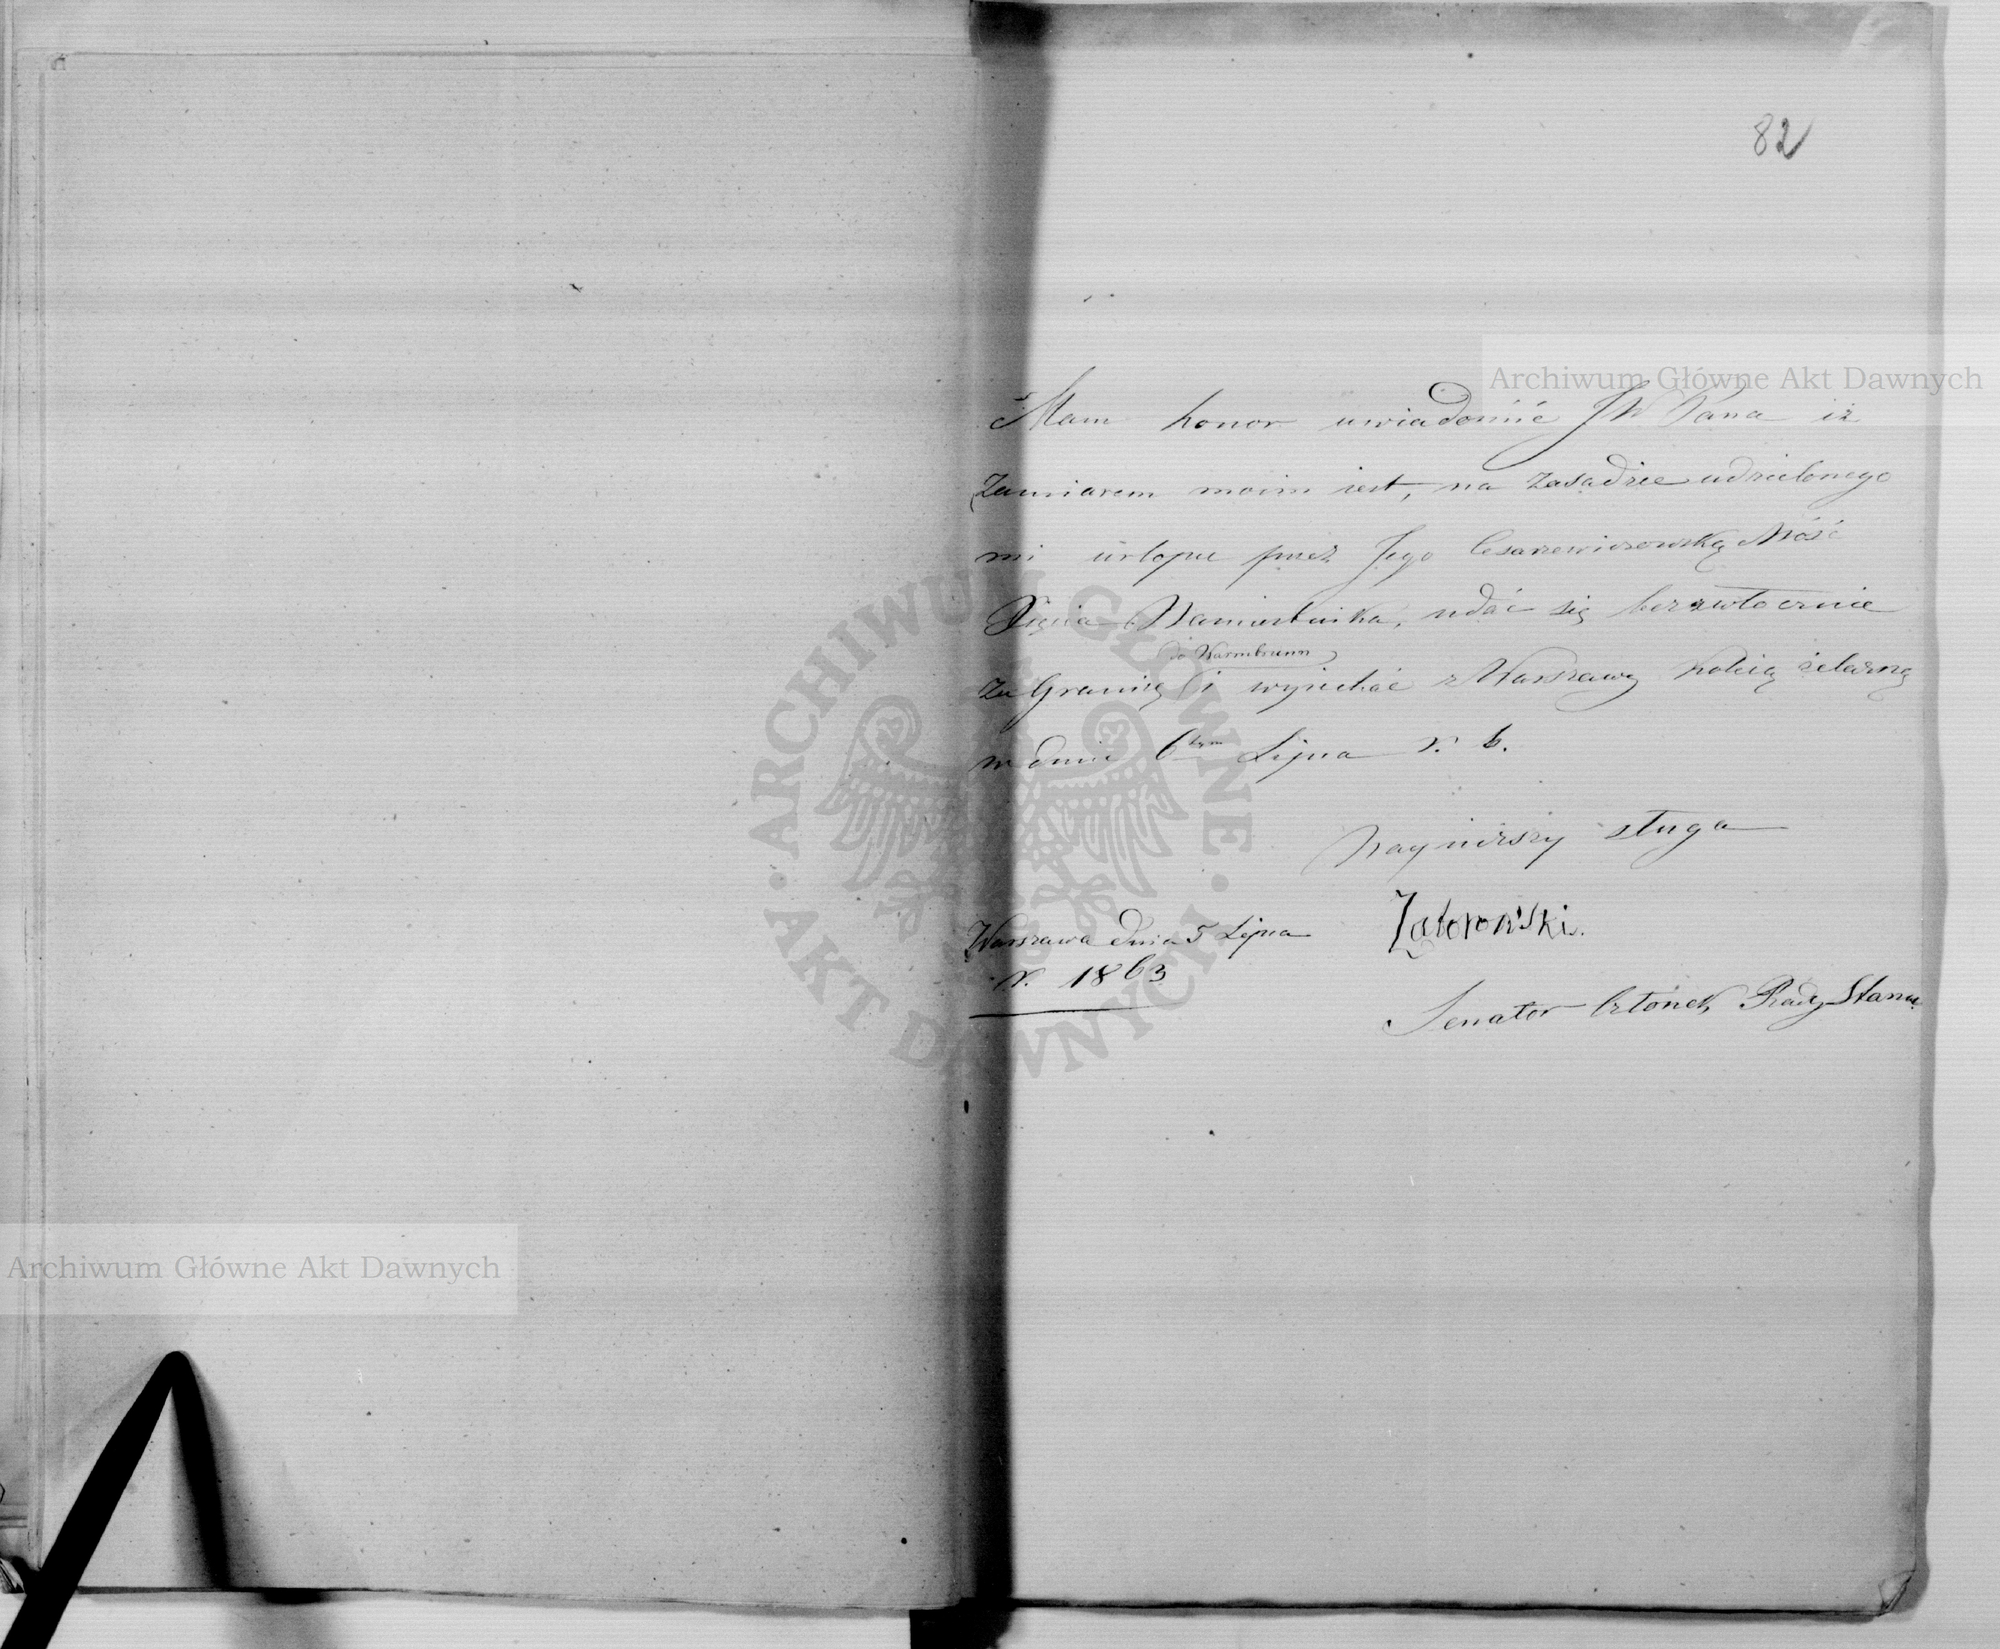 82
Archiwum Główne Akt Dawnych
Mam honor uwiadomić JW Pana iż
Zamiarem moim iest, na zasadzie udzielonego
mi urlopu przez Jego Cesarzewiczowską Mość
Xięcia Namiestnika, udać się bezzwłocznie
do Warmbrunn
za Granicę i wyiechać z Warszawy koleią żelazną
w dniu 6tym Lipca r. b.
Nayniższy sługa
Warszawa dnia 5 Lipca
r. 1863
Senator Członek Rady Stanu
ARCHIWUM GŁÓWNE AKT DAWNYCH
Archiwum Główne Akt Dawnych